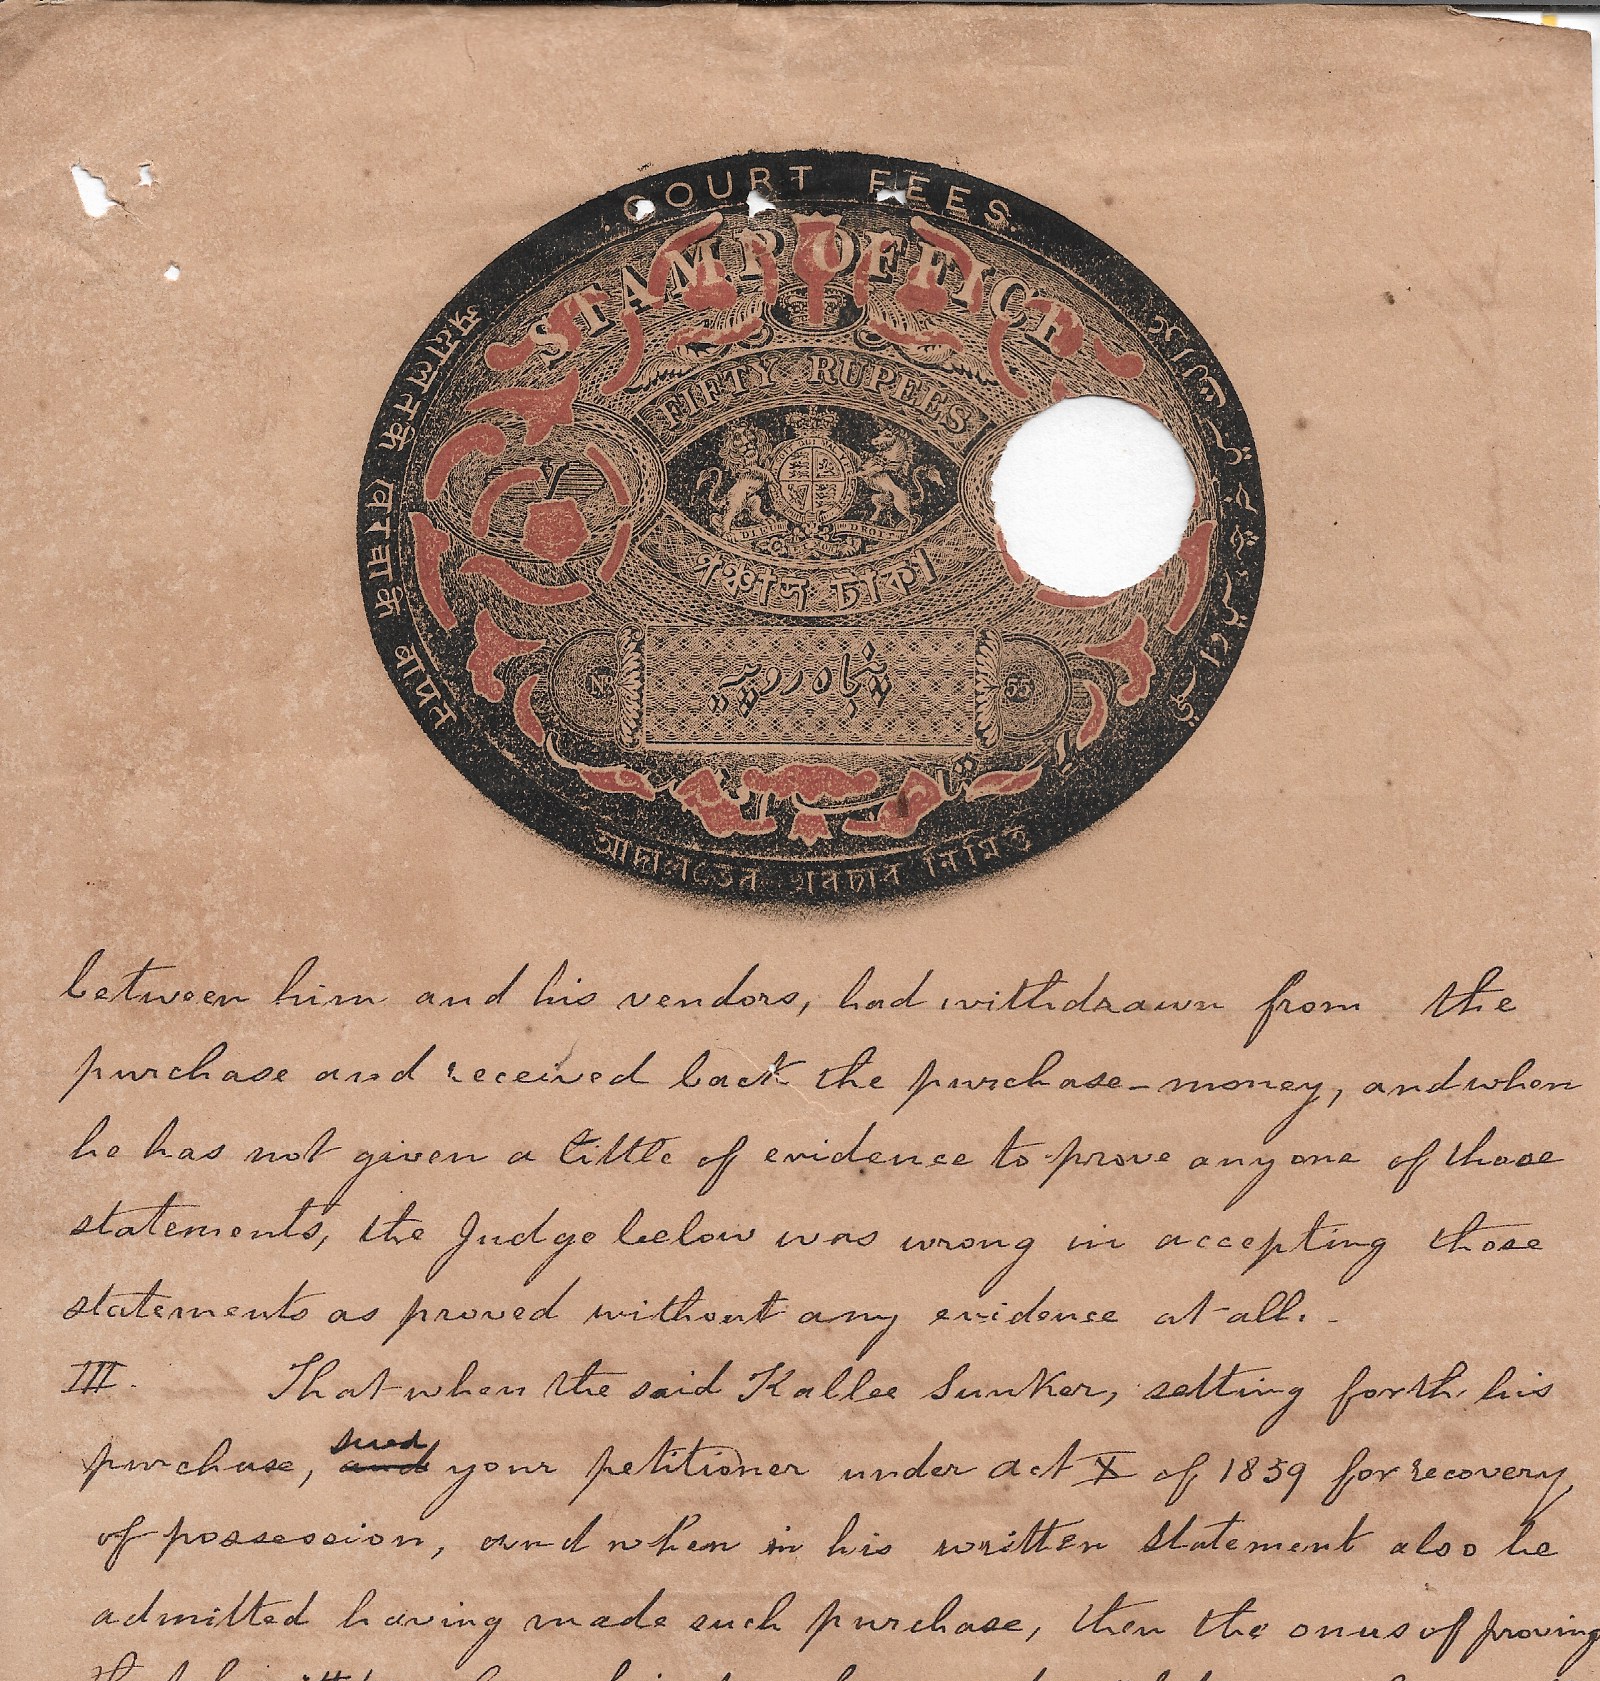 COURT FEES.
STAMP OFFICE
FIFTY RUPEES
DIEU ET MON DROIT
পঞ্চাশ টাকা
پنجاه روپیہ
No 55
আদালতের খরচার নিমিত্ত
between him and his vendors, had withdrawn from the
purchase and received back the purchase-money, and when
he has not given a tittle of evidence to prove any one of those
statements, the Judge below was wrong in accepting those
statements as proved without any evidence at all. -
III. That when the said Kallee Sunker, setting forth his
purchase, sued your petitioner under act X of 1859 for recovery
of possession, and when in his written statement also he
admitted having made such purchase, then the onus of proving